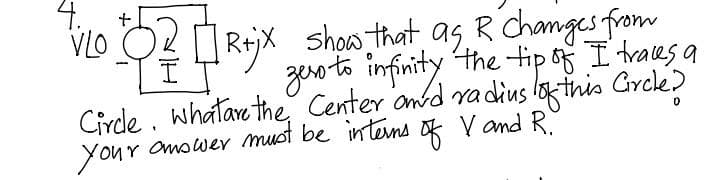 4.
V∠0 + - I R+jX show that as R changes from
zero to infinity the tip of I traces a
Circle. What are the Center and radius of this Circle?
your answer must be interms of V and R.